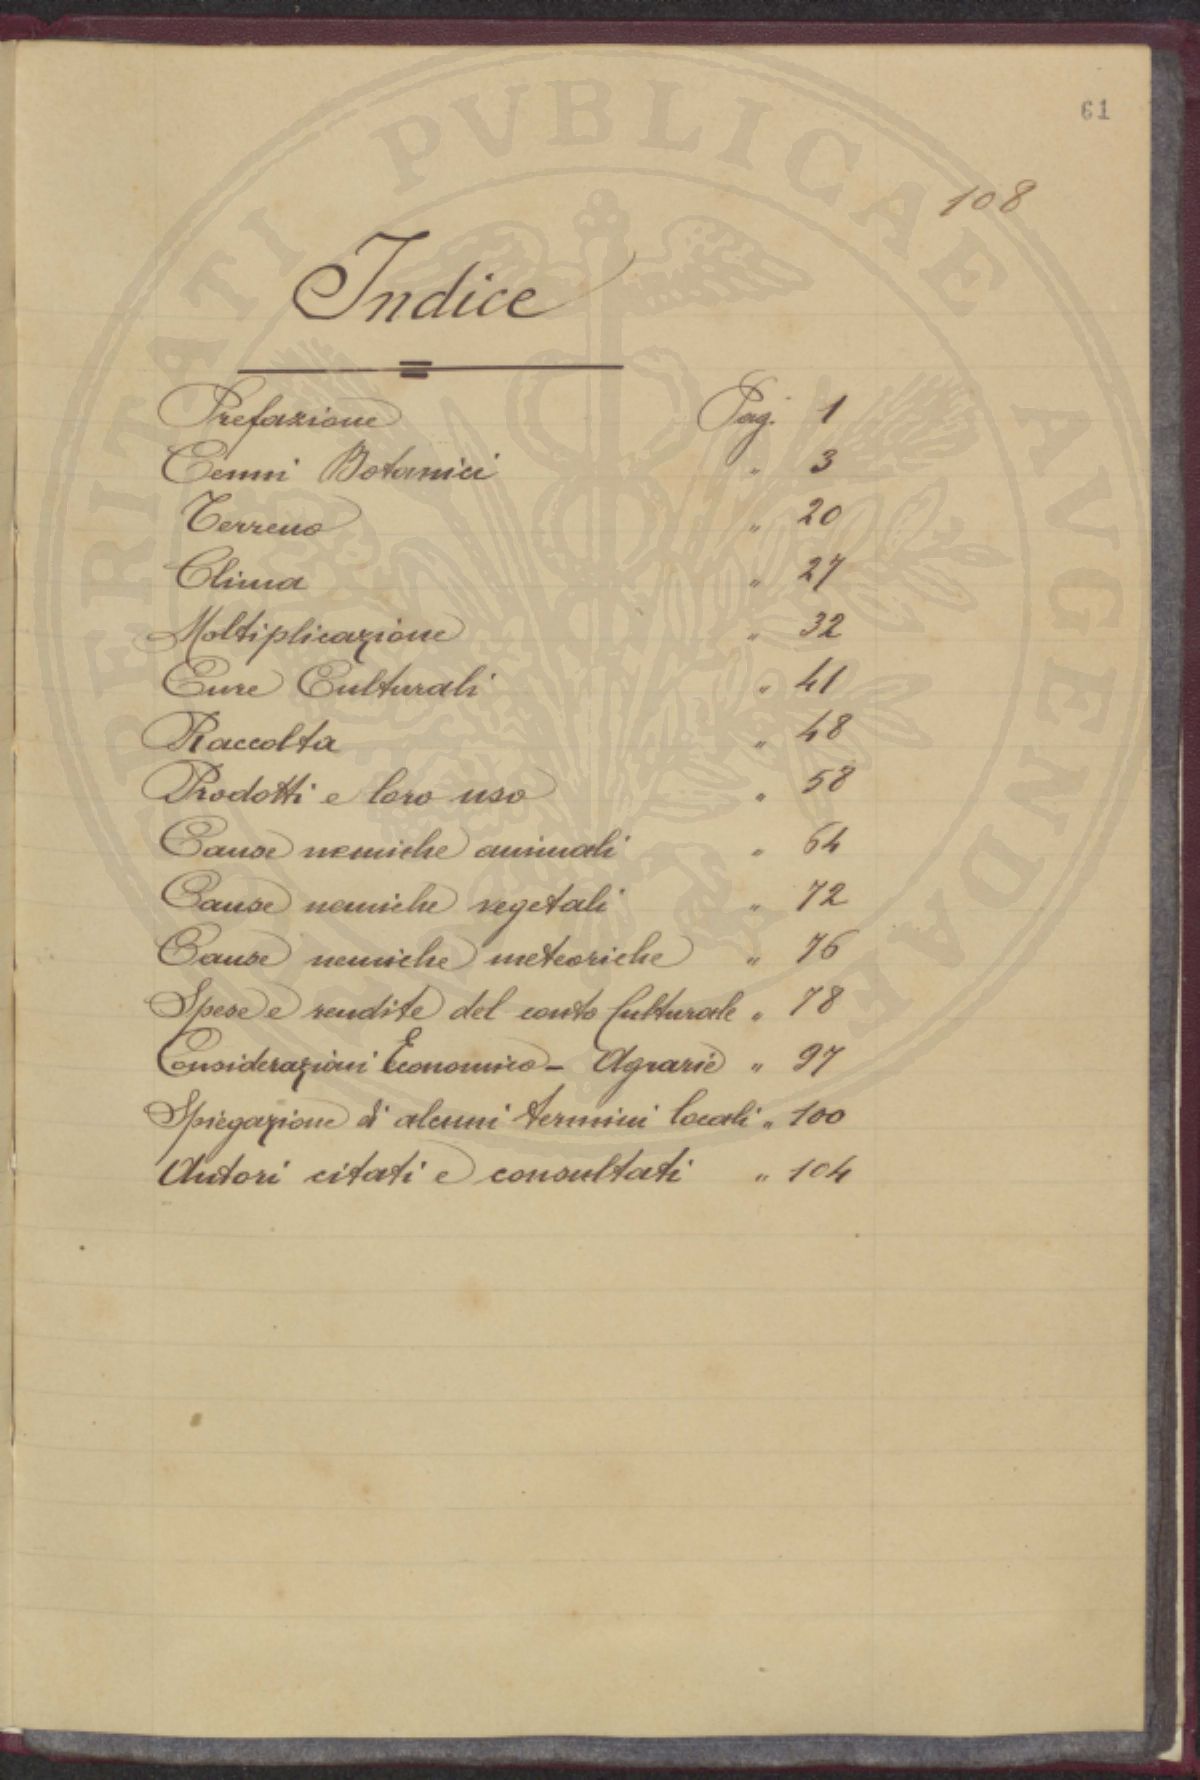 61
108
Indice
Prefazione Pag. 1
Cenni Botanici " 3
Terreno " 20
Clima " 27
Moltiplicazione " 32
Cure Culturali " 41
Raccolta " 48
Prodotti e loro uso " 58
Cause nemiche animali " 64
Cause nemiche vegetali " 72
Cause nemiche meteoriche " 76
Spese e rendite del conto Culturale " 78
Considerazioni Economico - Agrarie " 97
Spiegazione di alcuni termini locali " 100
Autori citati e consultati " 104
PROSPERITATI PVBLICAE AVGENDAE